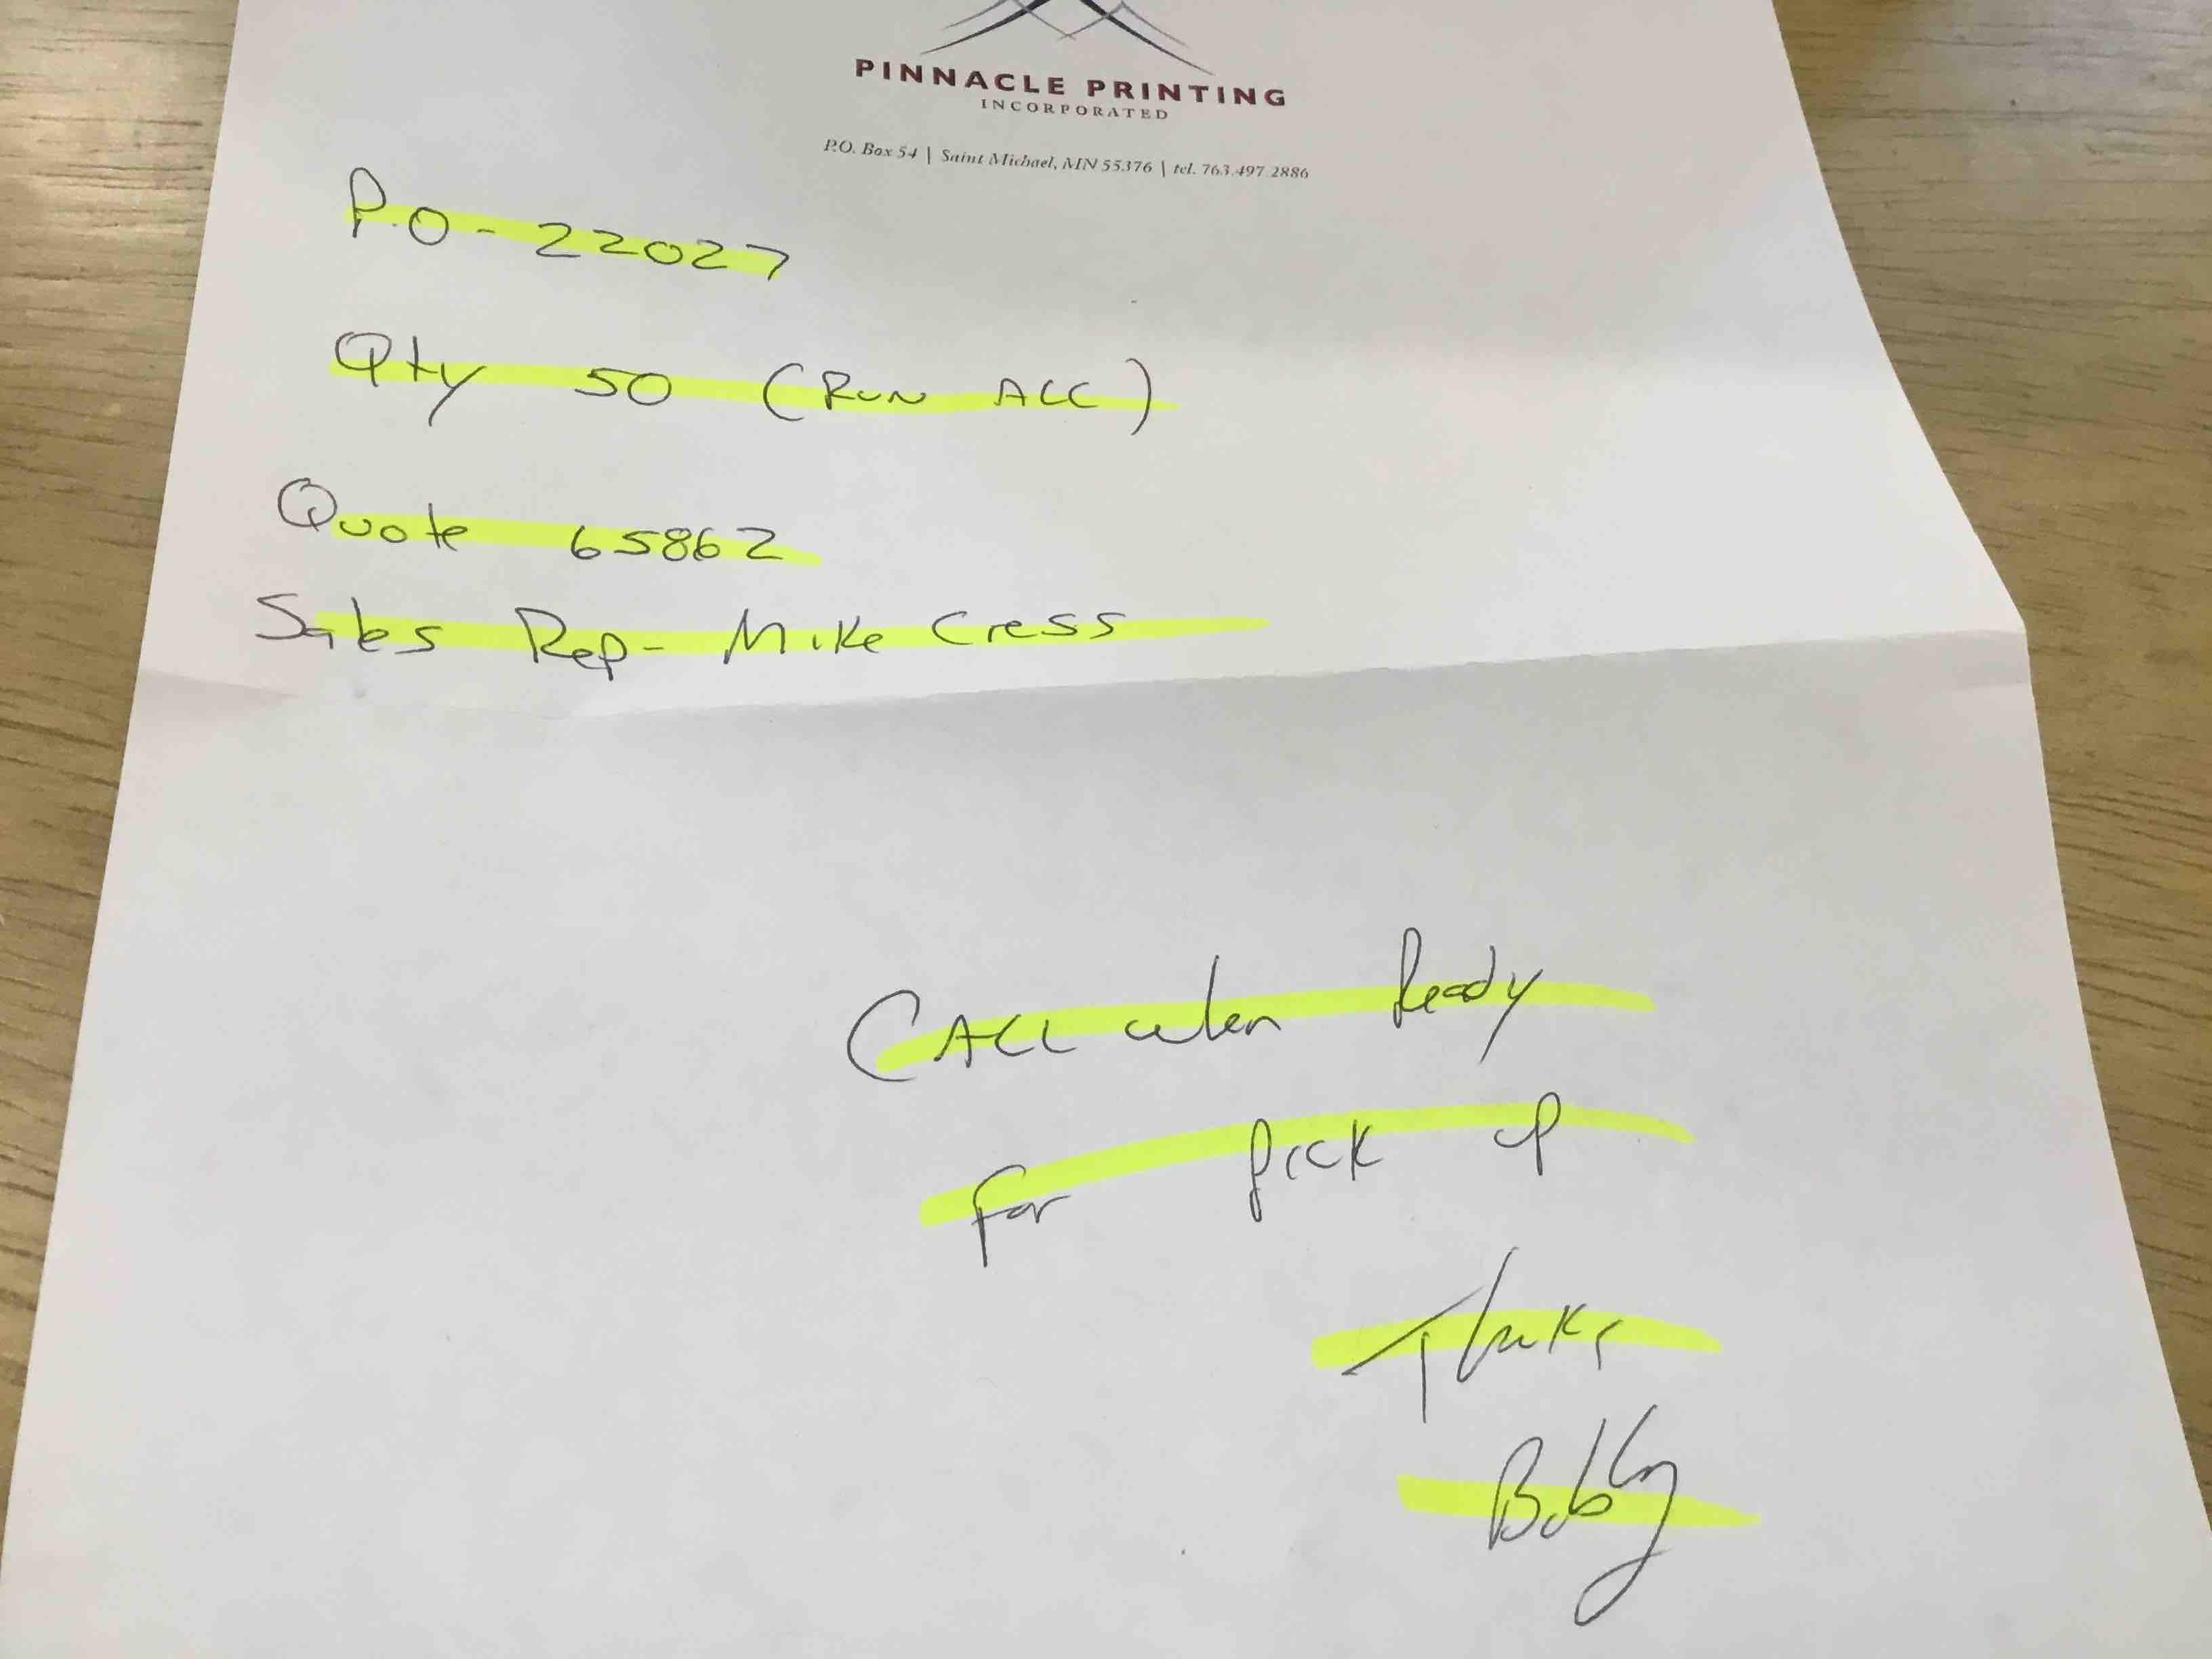 PINNACLE PRINTING
INCORPORATED
P.O. Box 54 | Saint Michael, MN 55376 | tel. 763.497.2886
P.O - 22027
Qty 50 (RUN ALL)
Quote 65862
Sales Rep- Mike Cress
CALL when Ready
for pick up
Thanks
Bobby